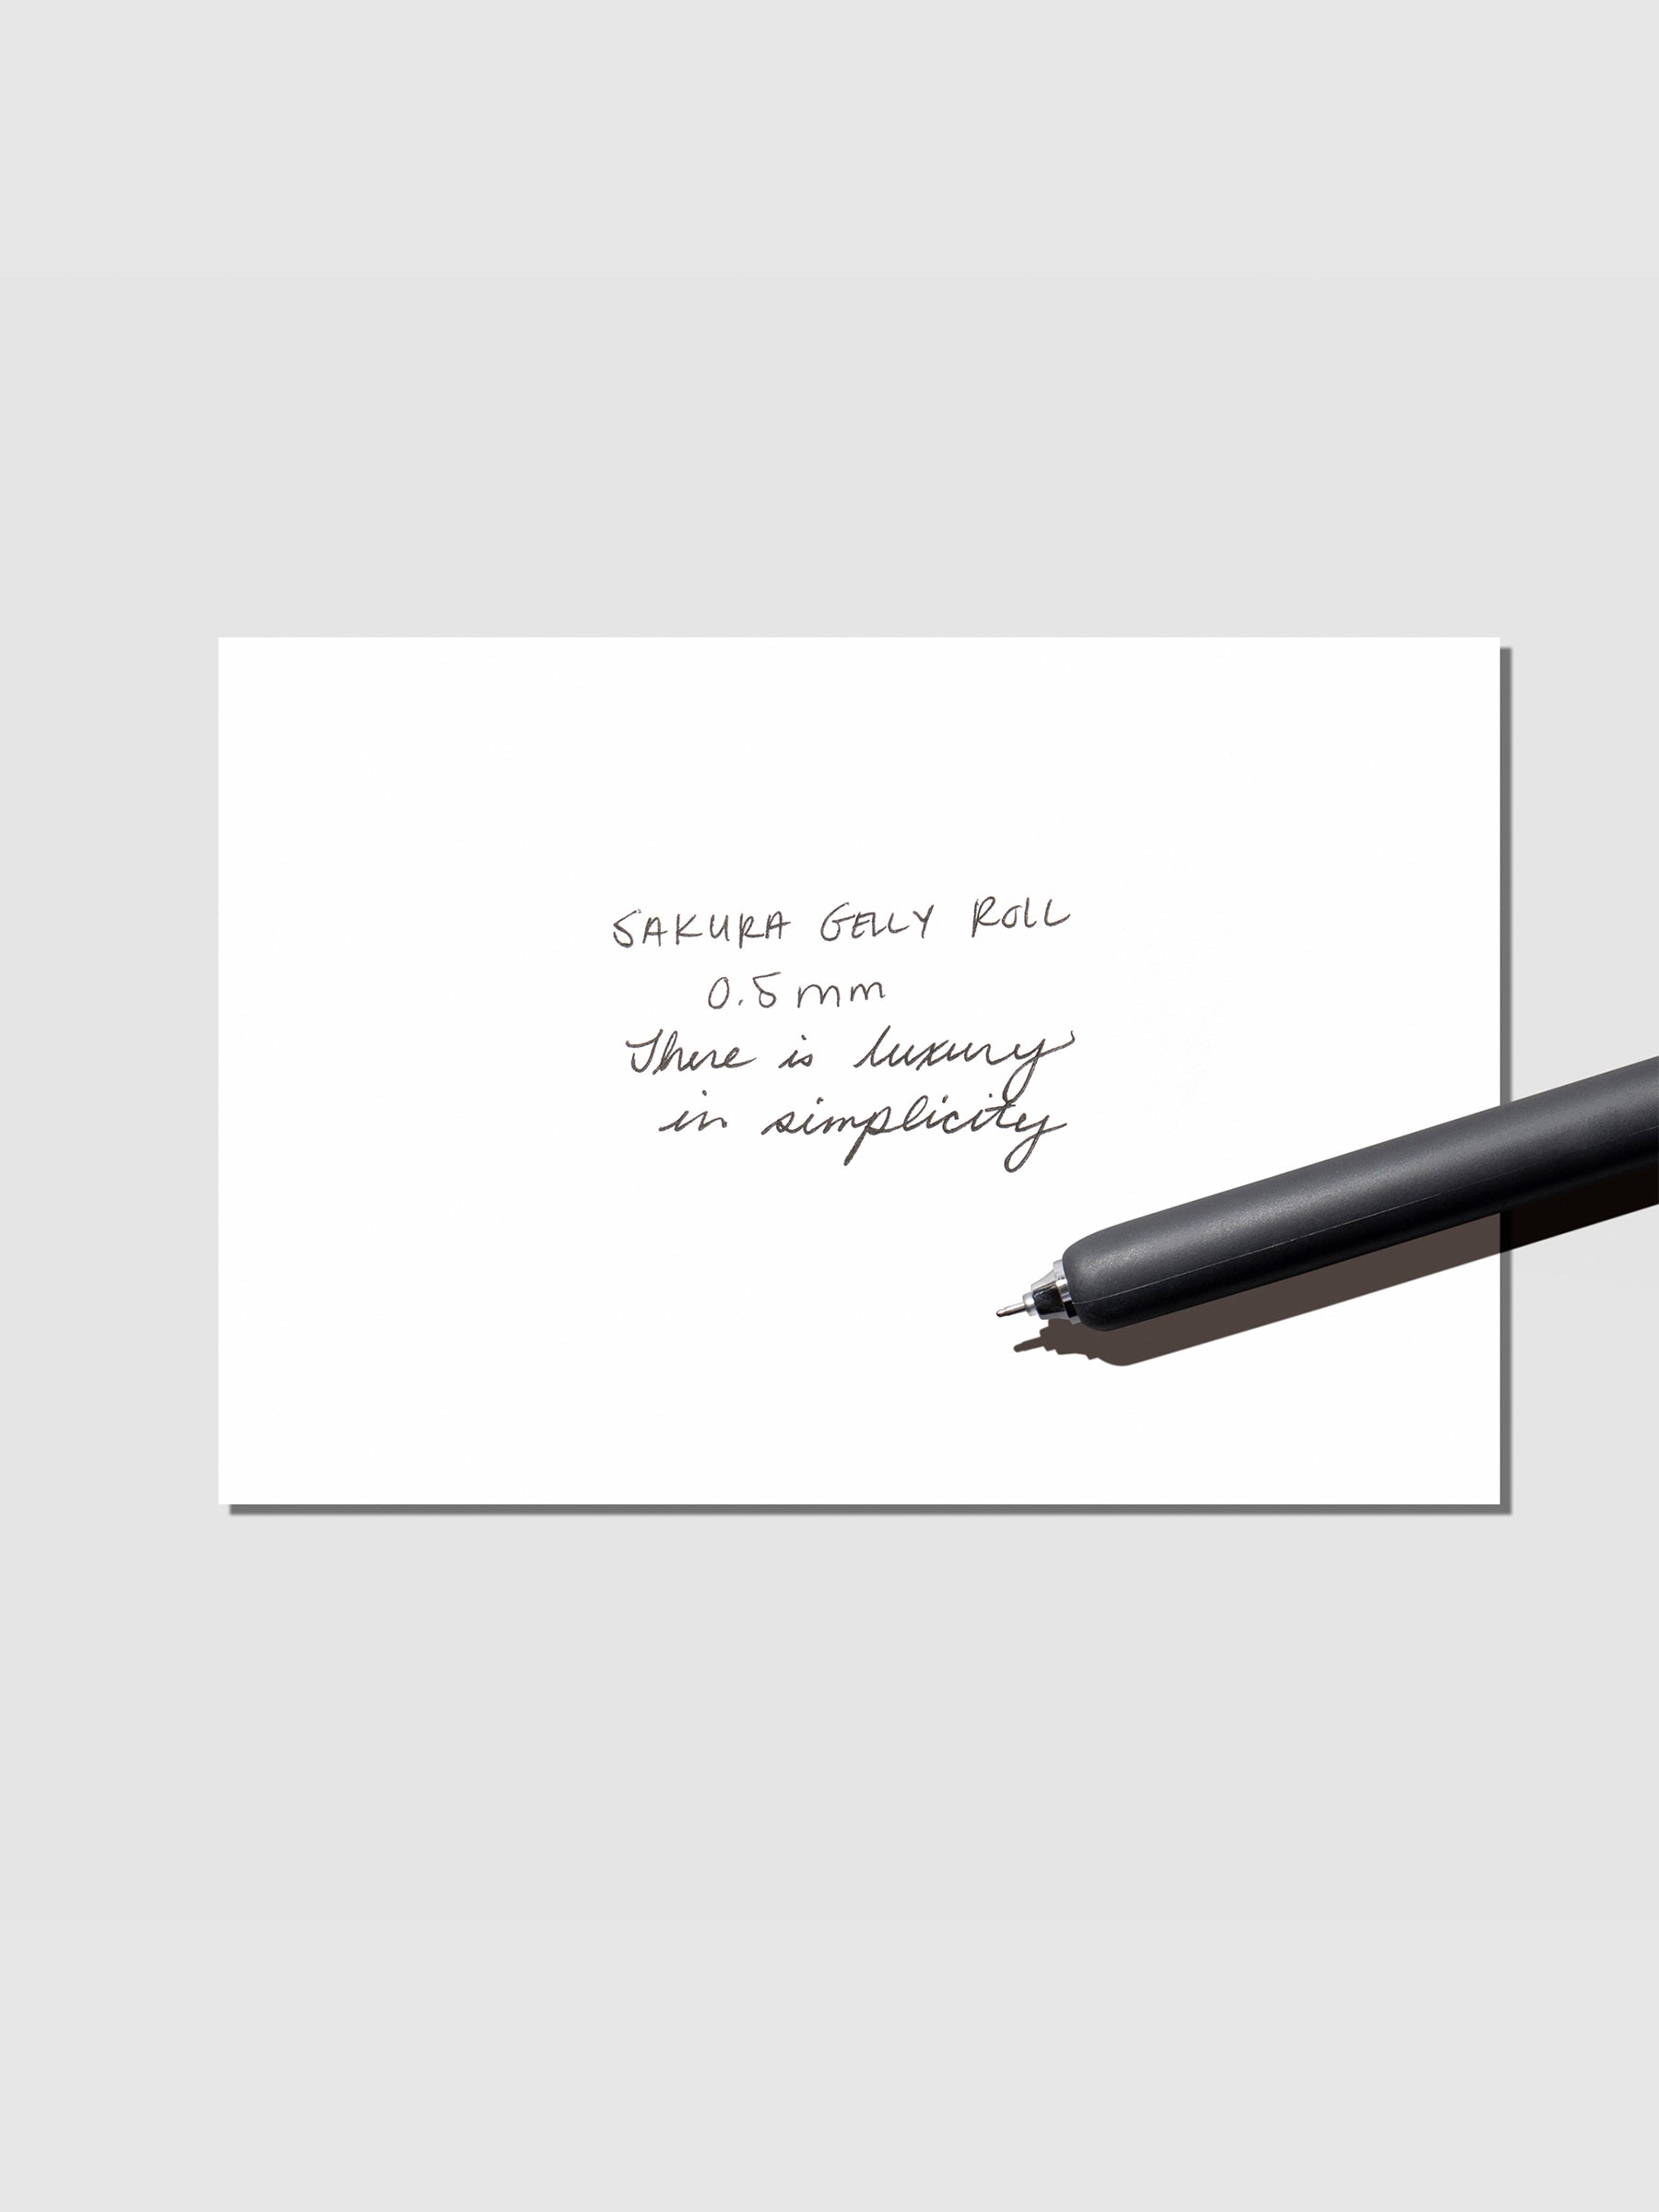 SAKURA GELLY ROLL
0.5mm
There is luxury
in simplicity